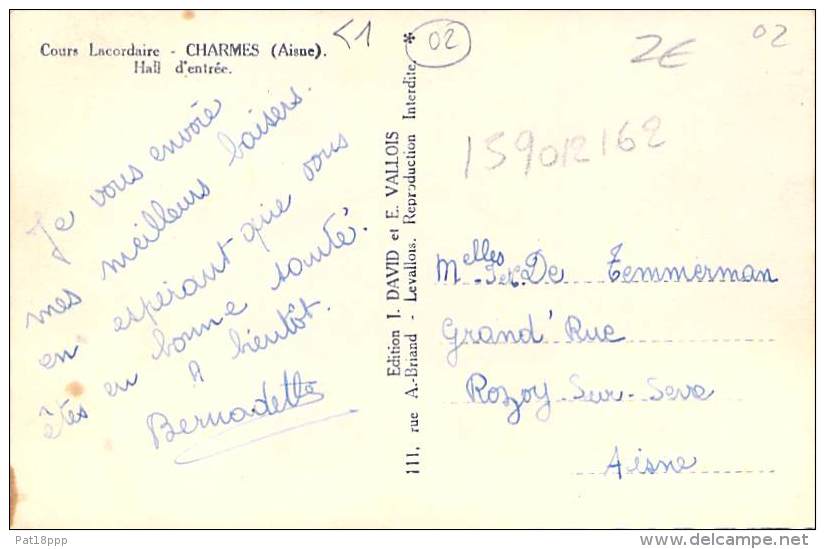 Cours Lacordaire - CHARMES (Aisne).
Hall d'entrée.
<1
02
2€
02
159012162
Je vous envoie
mes meilleurs baisers.
en espérant que vous
êtes en bonne santé.
A bientôt.
Bernadette
Edition J. DAVID et E. VALLOIS
111, rue A.-Briand - Levallois. Reproduction Interdite. *
Melles De Temmerman
Grand' Rue
Rozoy Sur-Serre
Aisne
Pat18ppp
delcampe.net